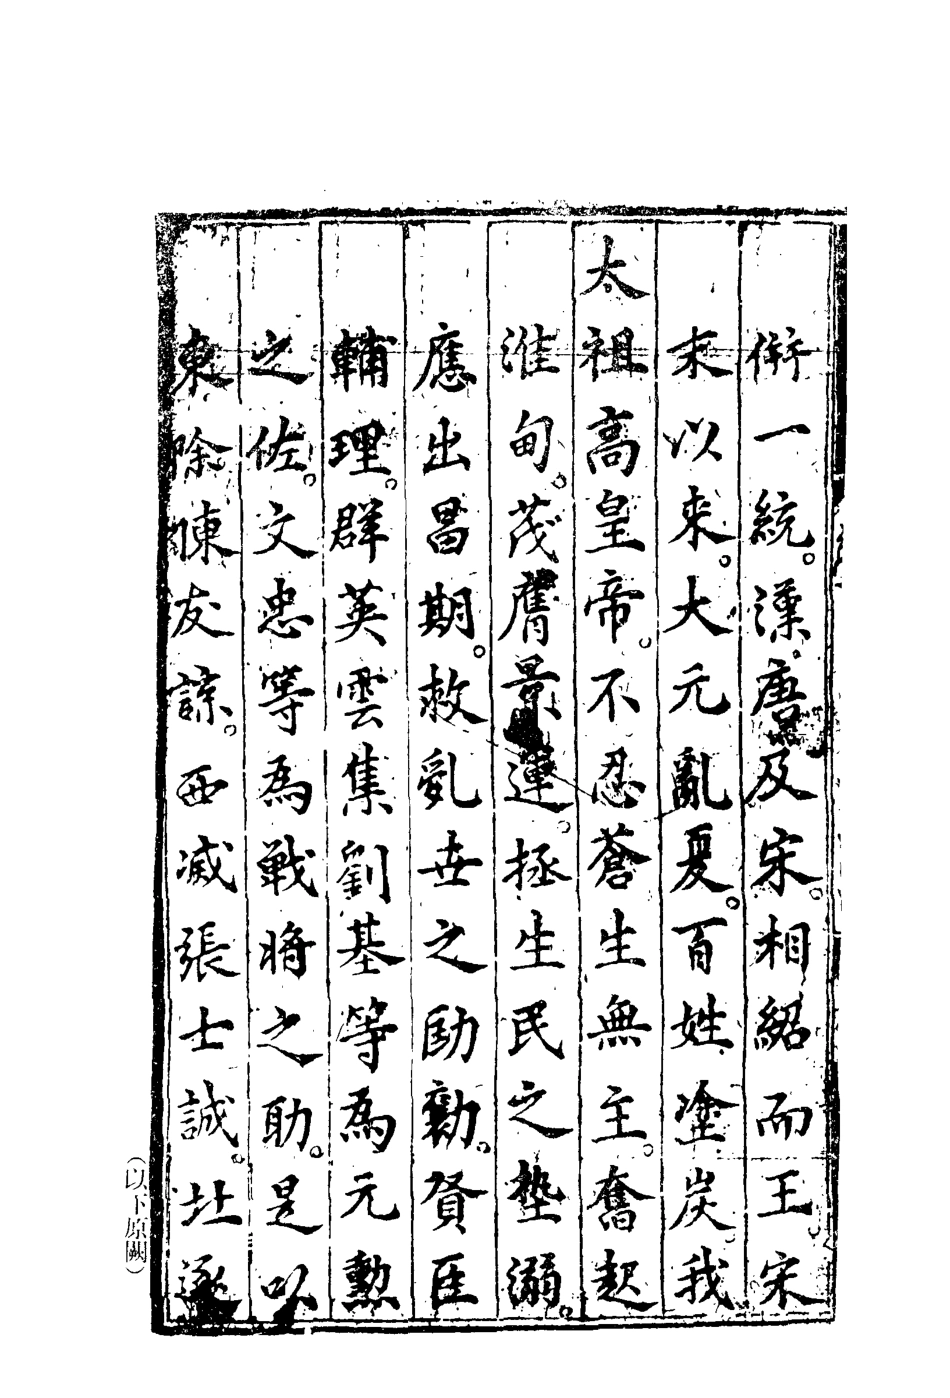 併一統。漢。唐及宋。相紹而王。宋
末以来。大元亂夏。百姓塗炭我
太祖高皇帝。不忍蒼生無主。奮起
淮甸。茂膺景運。拯生民之墊溺。
應出昌期。救乱世之劻勷。賢臣
輔理。群英雲集劉基等為元勲
之佐。文忠等為戰將之助。是以
東除陳友諒。西滅張士誠。北逐
（以下原闕）